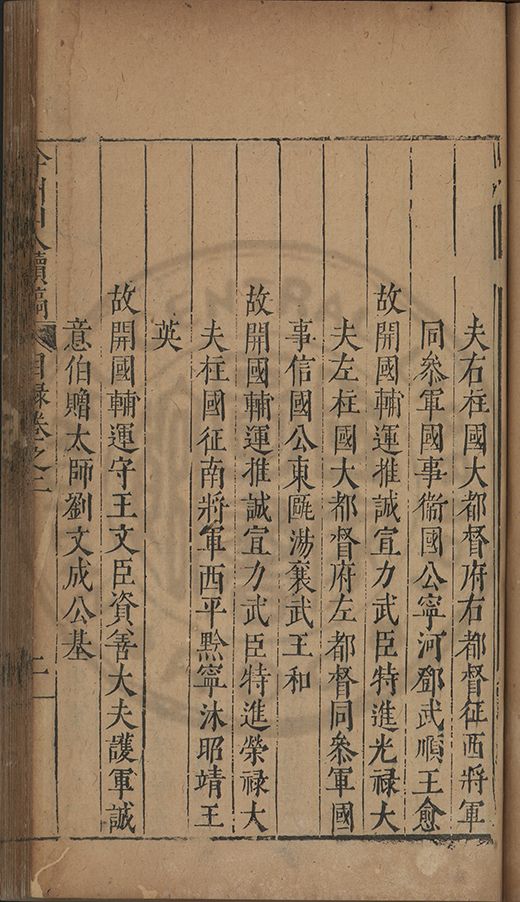 夫右柱國大都督府右都督征西將軍
同叅軍國事衞國公寧河鄧武順王愈
故開國輔運推誠宣力武臣特進光禄大
夫左柱國大都督府左都督同叅軍國
事信國公東甌湯襄武王和
故開國輔運推誠宣力武臣特進榮禄大
夫柱國征南將軍西平黔寧沐昭靖王
英
故開國輔運守正文臣資善大夫護軍誠
意伯贈太師劉文成公基
續稿 目錄卷之二